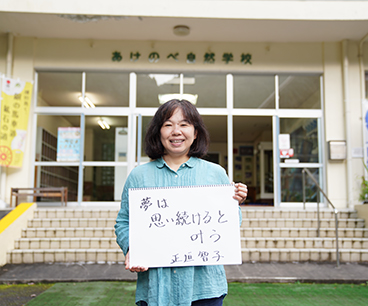 あけのべ自然学校
夢は
思い続けると
叶う
正垣智子